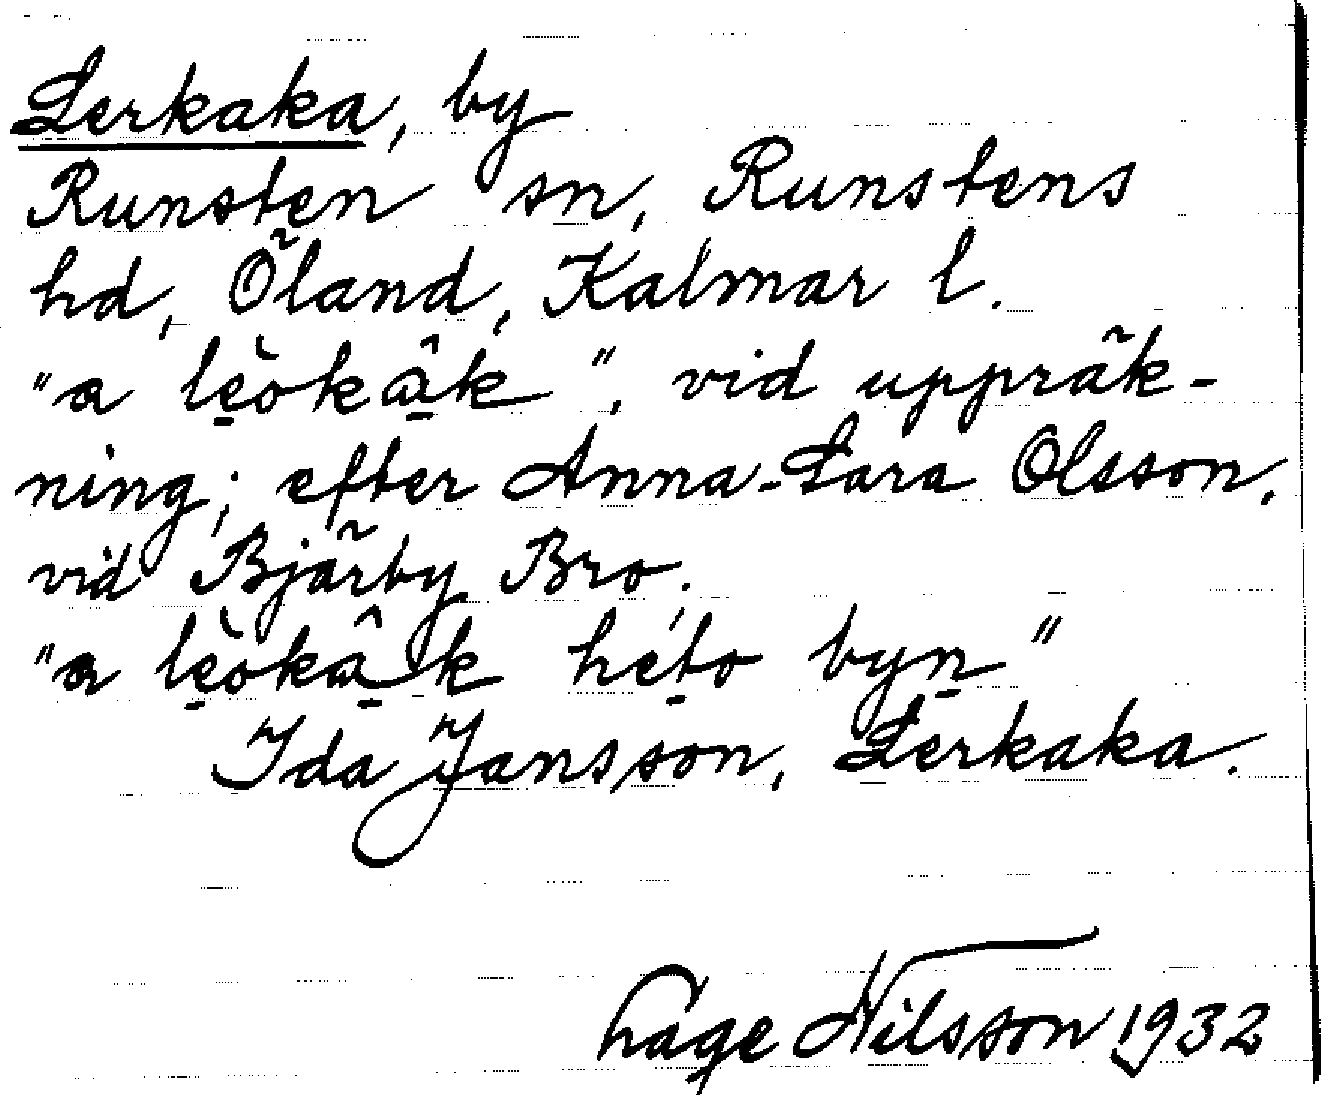 Lerkaka, by
Runsten sn, Runstens
hd, Öland, Kalmar l.
"a lèokâk", vid uppräk-
ning; efter Anna-Lara Olsson,
vid Bjärby Bro.
"a lèokâk héto byn"
Ida Jansson, Lerkaka.
Håge Nilsson 1932